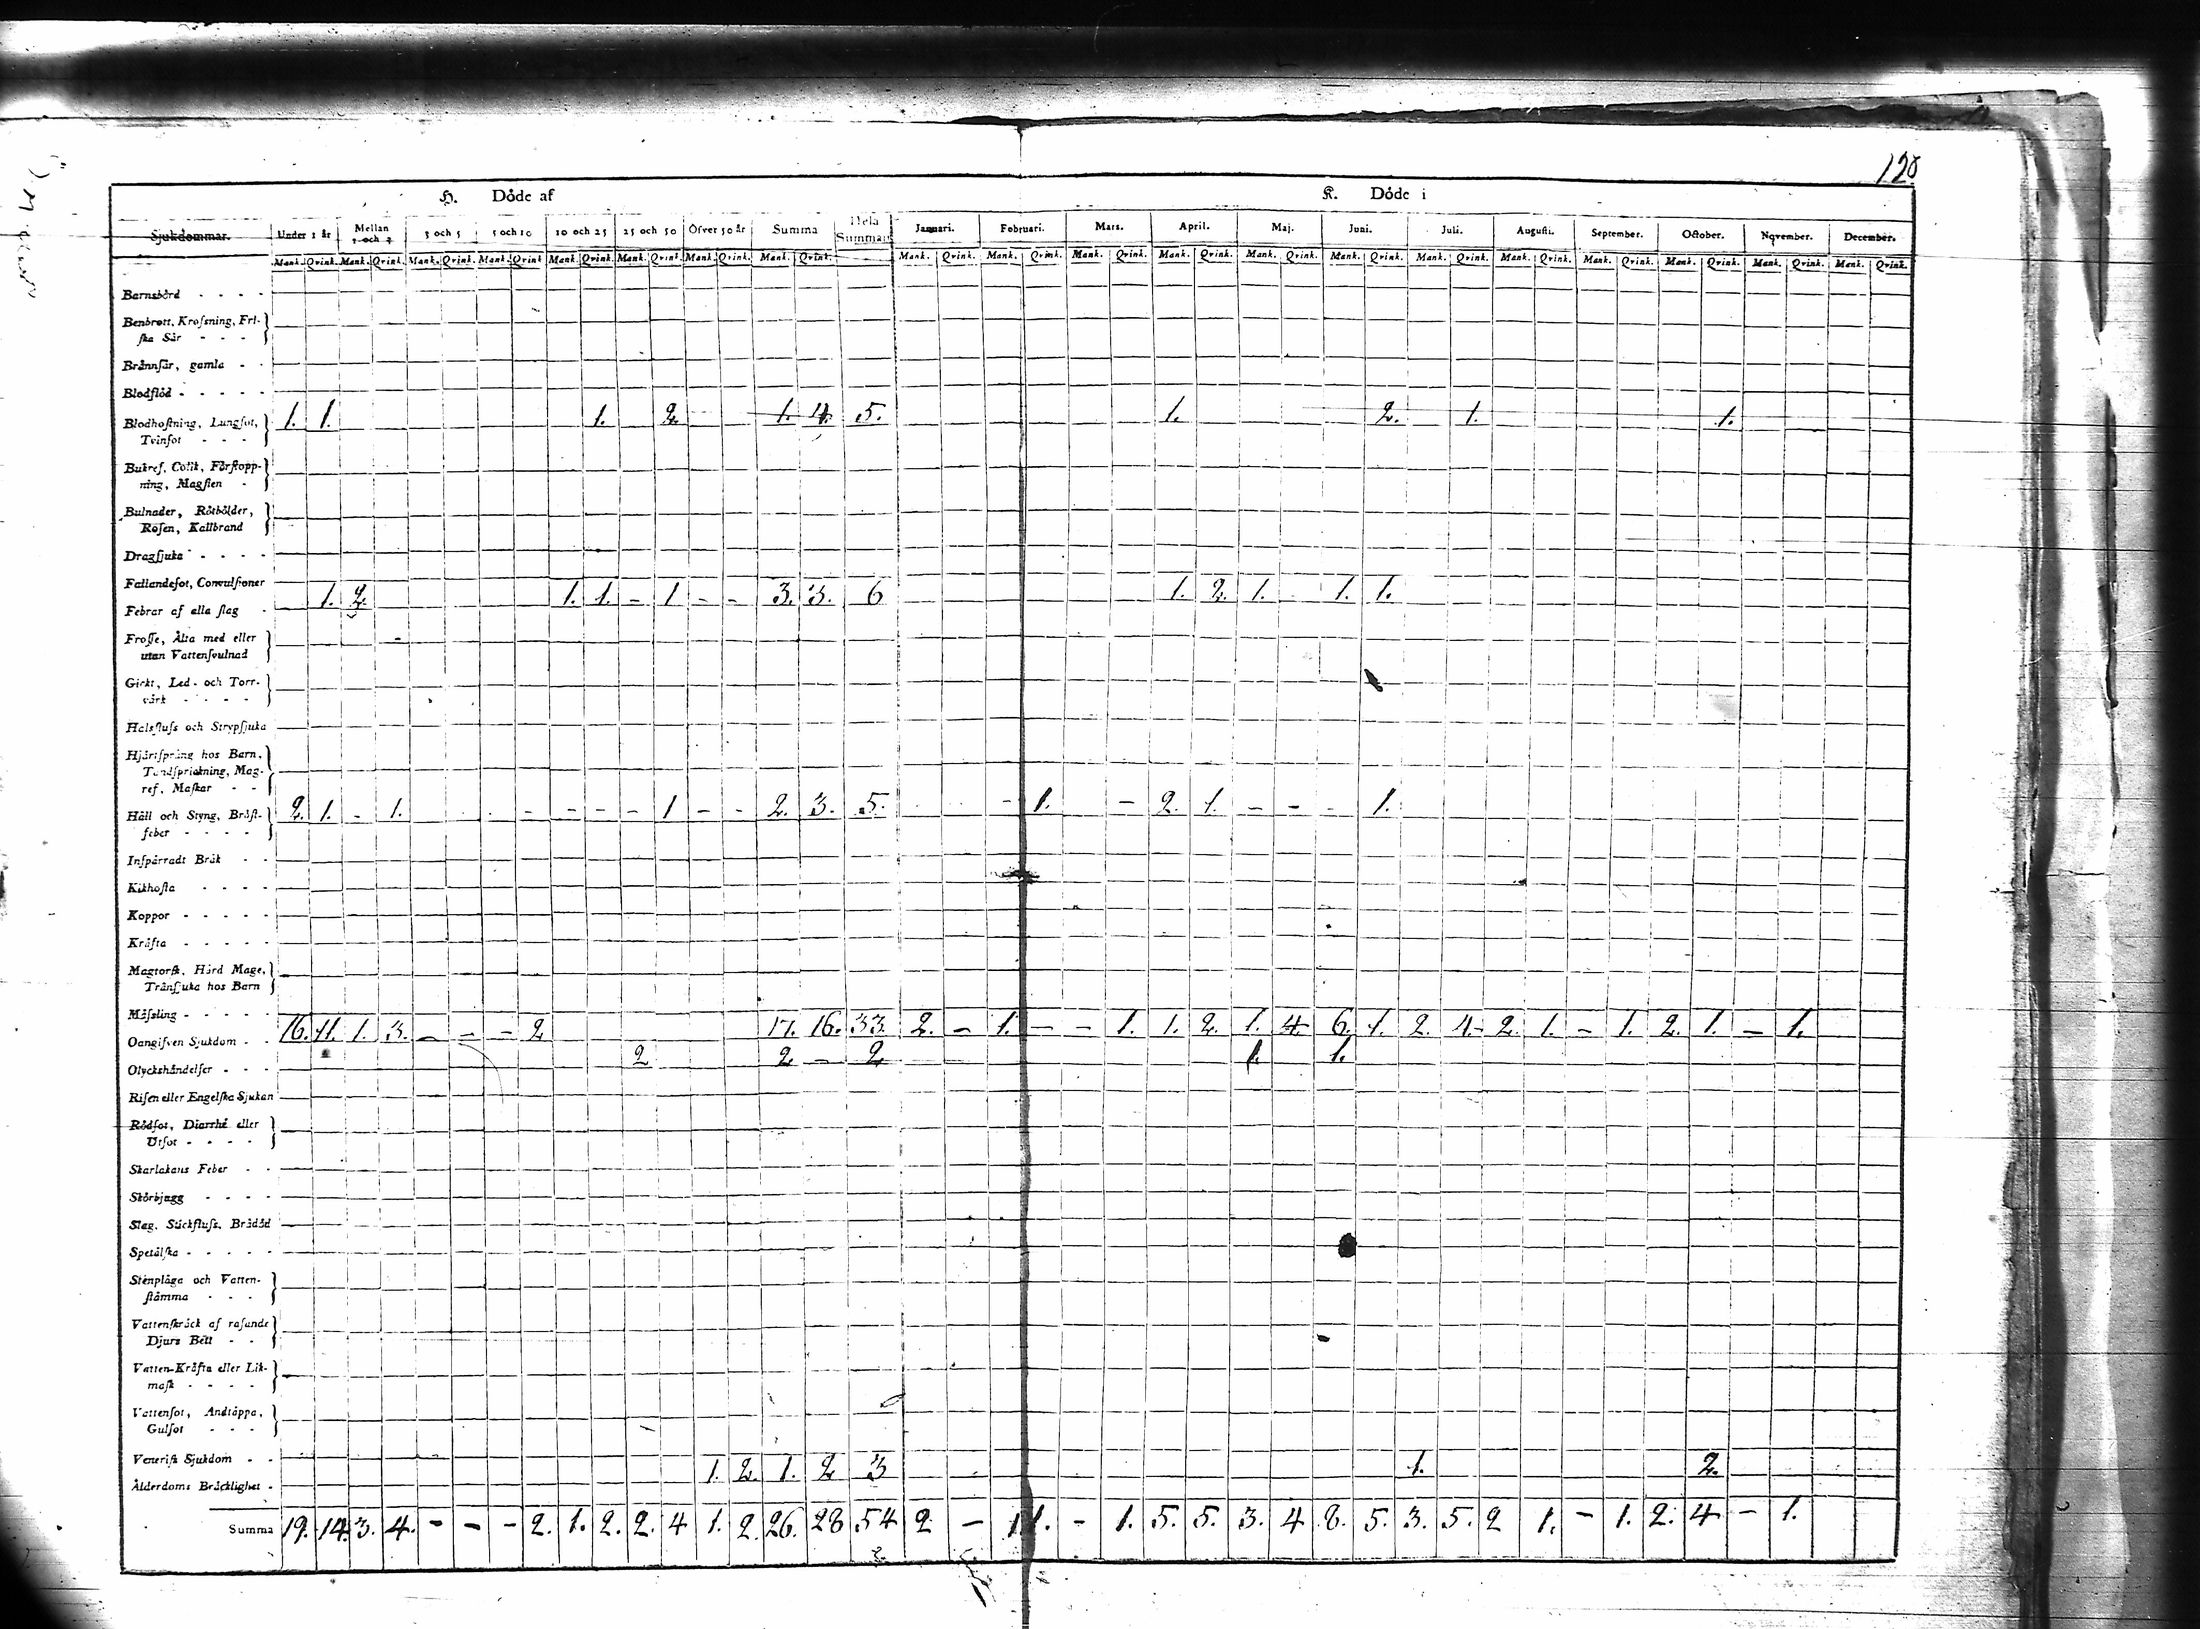 120
H. Döde af K. Döde i
Sjukdommar. Under 1 år Mellan 1 och 3 3 och 5 5 och 10 10 och 25 25 och 50 Öfver 50 år Summa Hela Summan Januari. Februari. Mars. April. Maj. Juni. Juli. Augusti. September. October. November. December.
Mank. Qvink. Mank. Qvink. Mank. Qvink. Mank. Qvink. Mank. Qvink. Mank. Qvink. Mank. Qvink. Mank. Qvink. Mank. Qvink. Mank. Qvink. Mank. Qvink. Mank. Qvink. Mank. Qvink. Mank. Qvink. Mank. Qvink. Mank. Qvink. Mank. Qvink. Mank. Qvink. Mank. Qvink. Mank. Qvink.
Barnsbörd - - - -
Benbrott, Krosning, Fri-
ska Sår - - -
Brännsår, gamla - -
Blodflöd - - - - -
Blodhostning, Lungsot, 1. 1. 1. 2 1. 4. 5. 1. 2. 1. 1.
Tvinsot - - -
Bukref, Colik, Förstopp-
ning, Magsten -
Bulnader, Rötbölder,
Rosen, Kallbrand
Dragsjuka - - - -
Fallandesot, Convulsioner
Febrar af alla slag - 1. 2. 1. 1. - 1 - - 3. 3. 6 1. 2. 1. 1. 1.
Frosse, Älta med eller
utan Vattensvulnad
Gickt, Led- och Torr-
värk - - - -
Halsfluss och Strypsjuka
Hjärtsprång hos Barn,
Tandsprickning, Mag-
ref, Maskar - -
Håll och Styng, Bröst- 2. 1. - 1. - - - - - 1 - - 2. 3. 5. - 1. - 2. 1. - - - 1.
feber - - - -
Inspärradt Bråk - -
Kikhosta - - - -
Koppor - - - - -
Kräfta - - - - -
Magtorsk, Hård Mage,
Tränsjuka hos Barn
Mässling - - - - -
Oangifven Sjukdom - - 16. 11. 1. 3. - - - 2 17. 16. 33. 2. - 1. - - 1. 1. 2. 1. 4. 6. 1. 2. 4. 2. 1. - 1. 2. 1. - 1.
Olyckshändelser - - - 2 2. - 2 1. 1.
Risen eller Engelska Sjukan
Rödsot, Diarrhé eller
Utsot - - - -
Skarlakans Feber - -
Skörbjugg - - - -
Slag, Stickfluss, Brådöd
Spetälska - - - - -
Stenplåga och Vatten-
stämma - - -
Vattenskräck af rasande
Djurs Bett - -
Vatten-Kräfta eller Lik-
mask - - - -
Vattensot, Andtäppa,
Gulsot - - -
Venerisk Sjukdom - -
Ålderdoms Bräcklighet - 1. 2. 1. 2 3 1. 2.
Summa 19. 14. 3. 4. - - - 2. 1. 2. 2. 4 1. 2. 26. 28 54 2 - 1 1. - 1. 5. 5. 3. 4 8. 5. 3. 5. 2 1. - 1. 2. 4 - 1.